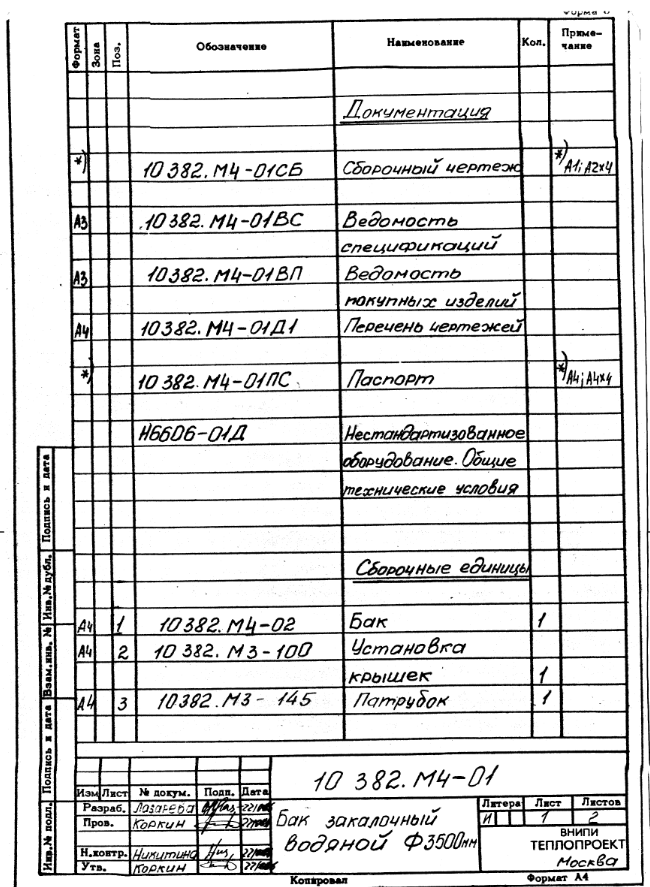 Форма 6
Формат Зона Поз. Обозначение Наименование Кол. Приме-
чание
Документация
*) 10 382.М4-01СБ Сборочный чертеж *) А1; А2х4
А3 10 382.М4-01ВС Ведомость
спецификаций
А3 10 382.М4-01ВП Ведомость
покупных изделий
А4 10382.М4-01Д1 Перечень чертежей
*) 10 382.М4-01ПС Паспорт *) А4; А4х4
Н6606-01Д Нестандартизованное
оборудование. Общие
технические условия
Сборочные единицы
А4 1 10382.М4-02 Бак 1
А4 2 10 382.М3-100 Установка
крышек 1
А4 3 10382.М3-145 Патрубок 1
Подпись и дата
Инв.№ дубл.
Взам.инв. №
Подпись и дата
Инв.№ подл.
10 382.М4-01
Изм Лист № докум. Подп. Дата
Разраб. Лазарева
Пров. Коркин
Н.контр. Никитина
Утв. Коркин
Бак закалочный
водяной Ф3500мм
Литера Лист Листов
И 1 2
ВНИПИ
ТЕПЛОПРОЕКТ
Москва
Копировал Формат А4